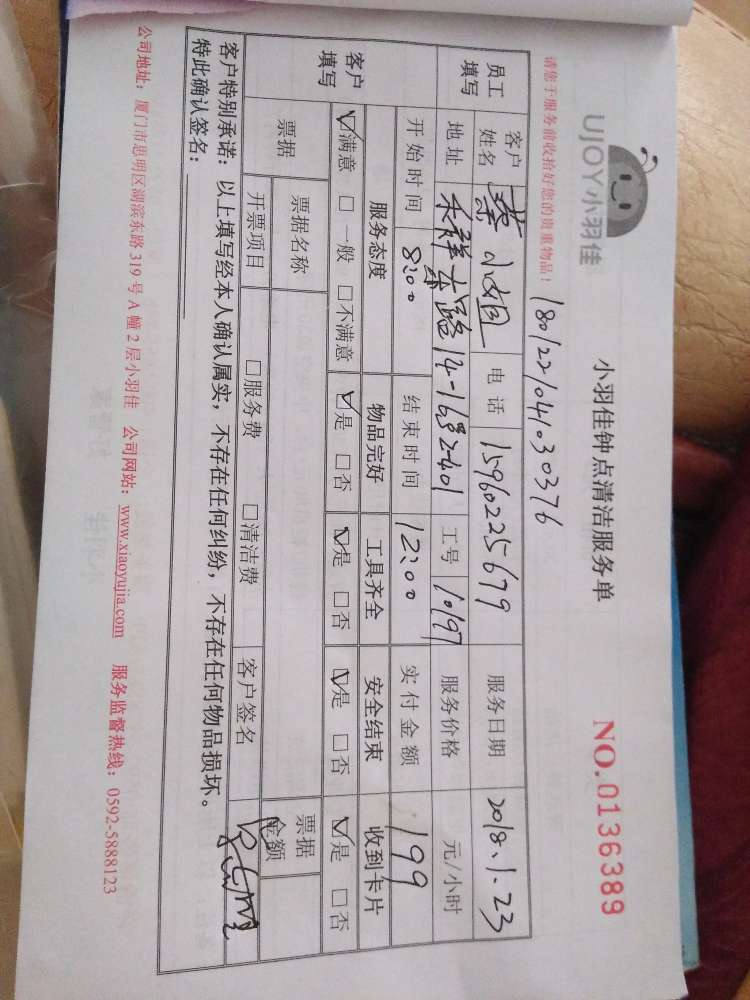 UJOY小羽佳
小羽佳钟点清洁服务单
NO.0136389
请您于服务前收拾好您的贵重物品！
18012204030376
员工填写
客户姓名 蔡小姐 电话 15960225679 服务日期 2018.1.23
地址 禾祥东路14-16号2401 工号 10197 服务价格 元/小时
开始时间 8:00 结束时间 12:00 实付金额 199
客户填写
服务态度 物品完好 工具齐全 安全结束 收到卡片
☑满意 □一般 □不满意 ☑是 □否 ☑是 □否 ☑是 □否 ☑是 □否
票据 票据名称 票据金额
开票项目 □服务费 □清洁费 客户签名
客户特别承诺：以上填写经本人确认属实，不存在任何纠纷，不存在任何物品损坏。
特此确认签名：
公司地址：厦门市思明区湖滨东路319号A幢2层小羽佳 公司网站：www.xiaoyujia.com 服务监督热线：0592-5888123